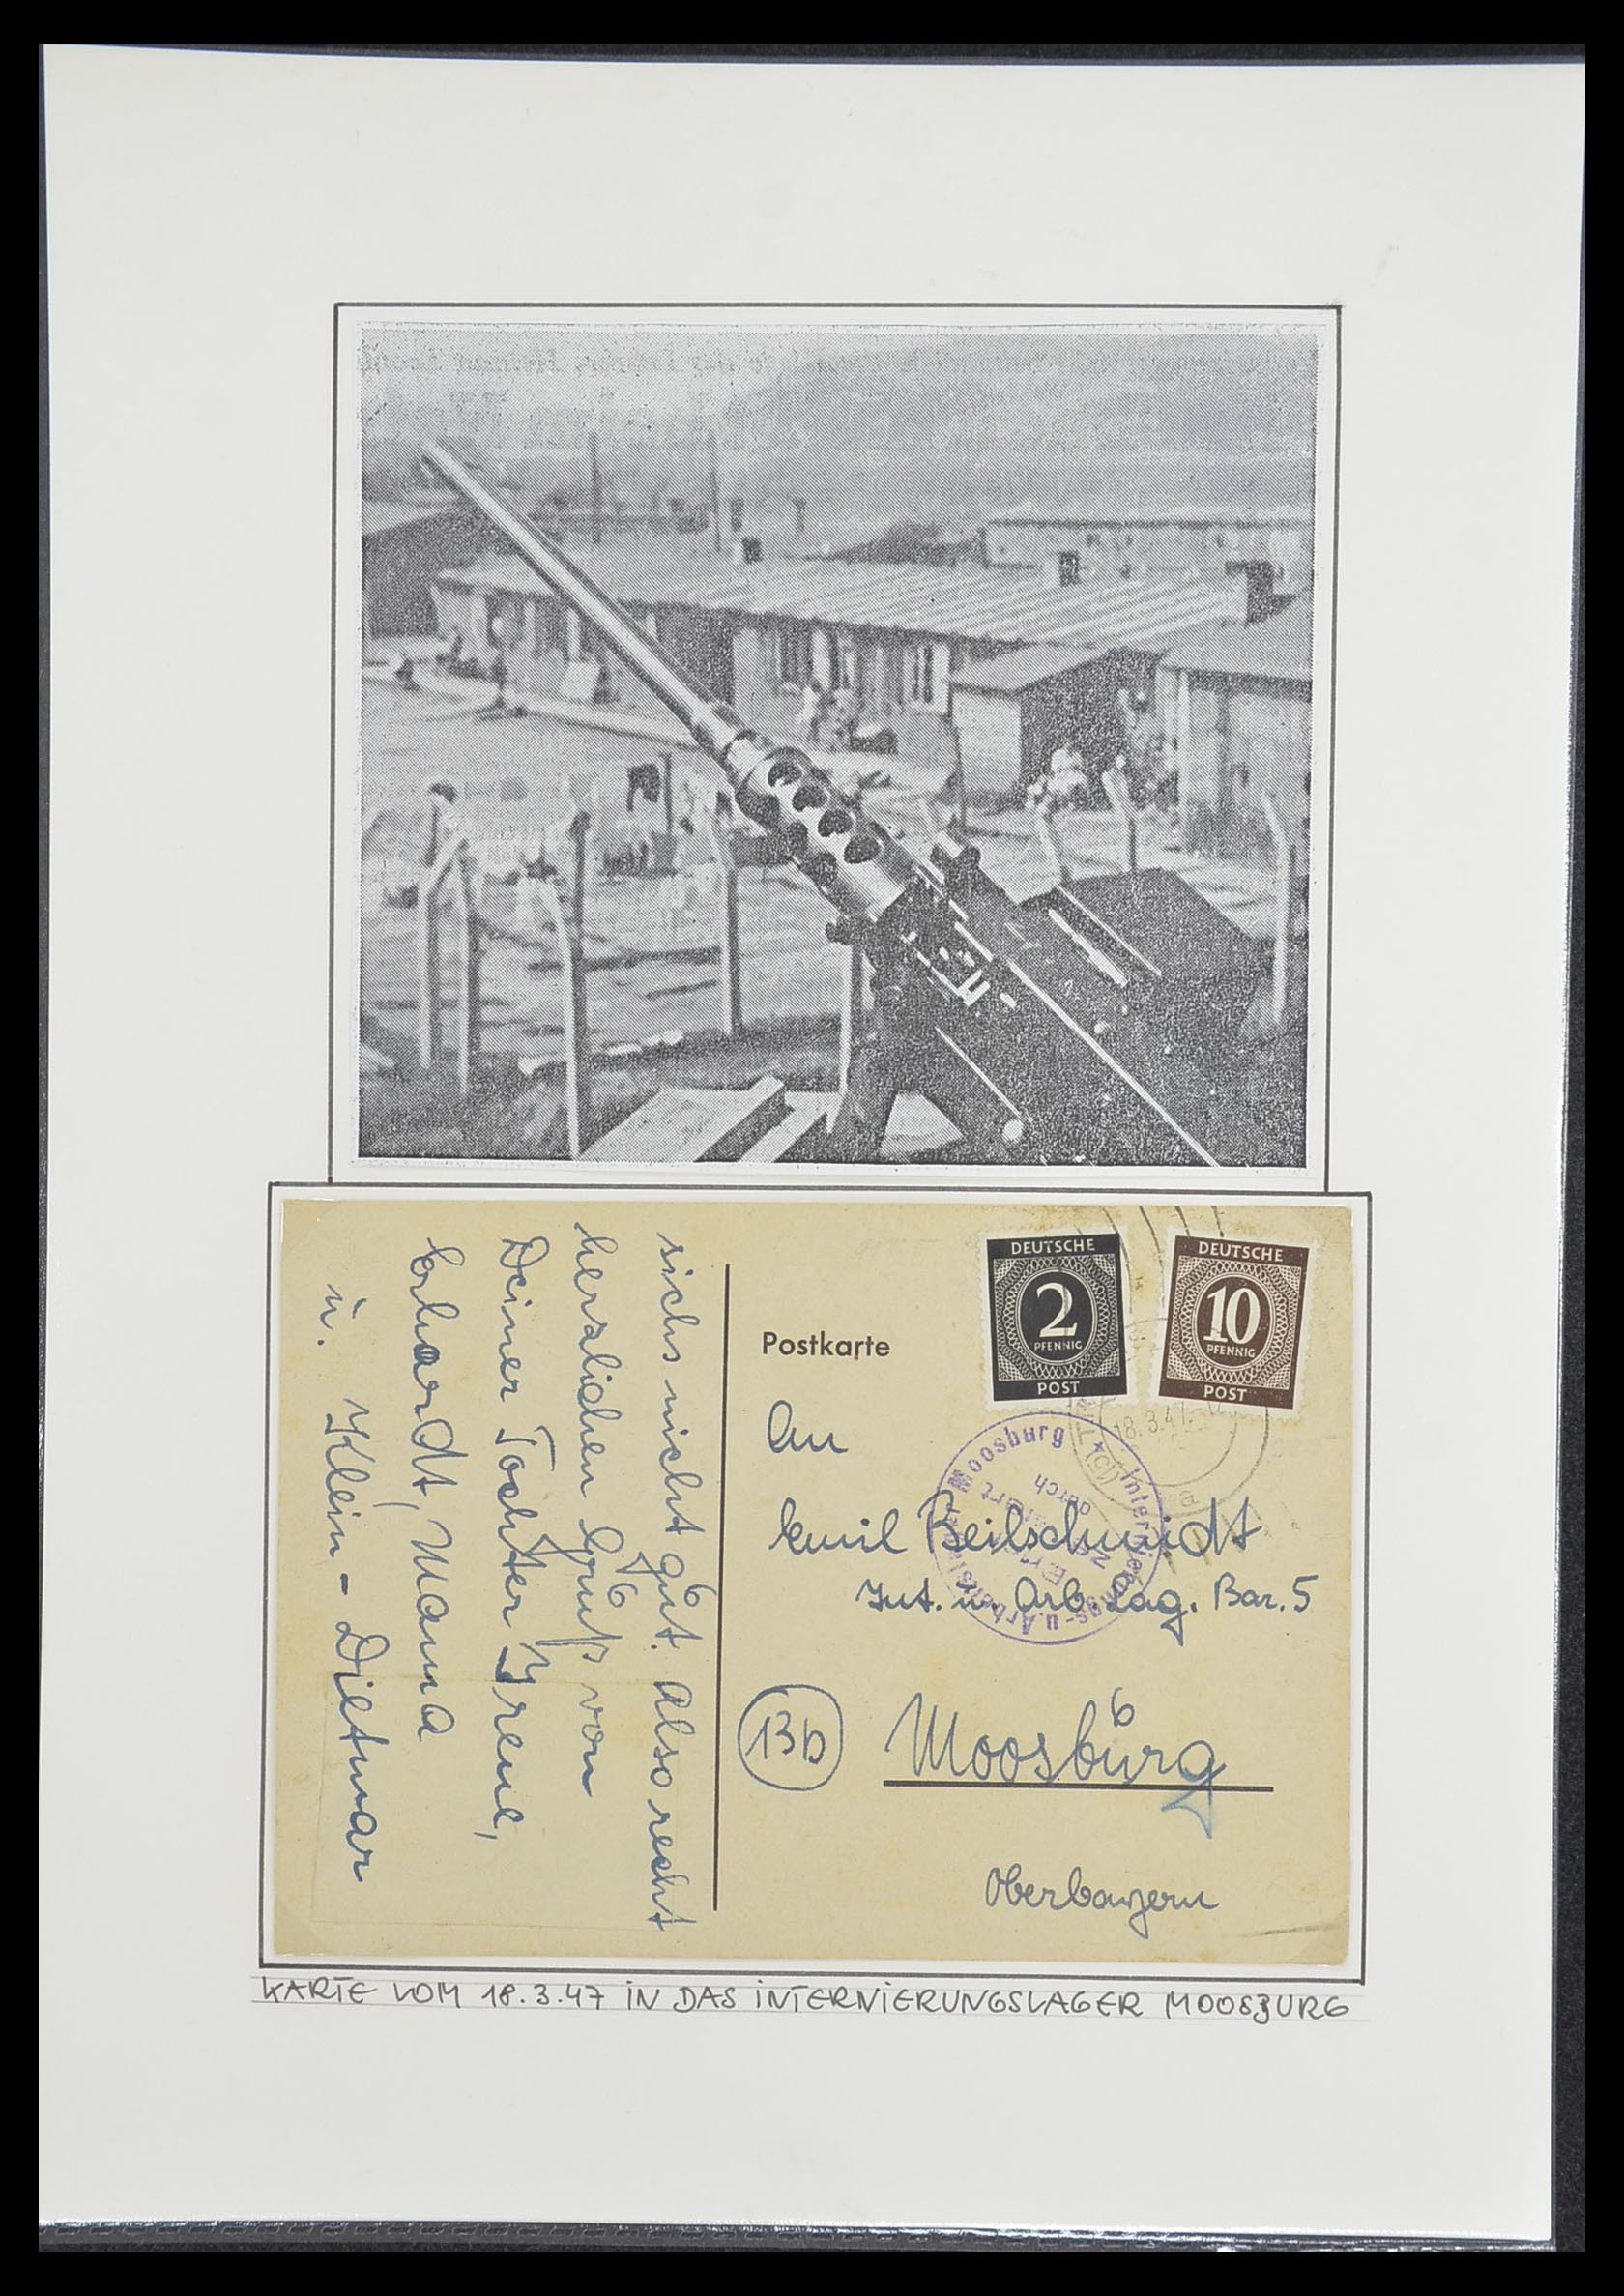 DEUTSCHE
2
PFENNIG
POST
DEUTSCHE
10
PFENNIG
POST
18.3.47
Postkarte
An
Emil Beilschmidt
Int. u. Arb. Lag. Bar. 5
13b
Moosburg
Oberbayern
Internierungs- u. Arbeitslager Moosburg
durch
sichs nicht gut. Also recht
herzlichen Gruß von
Deiner Tochter Irene,
Erhardt, Mama
u. Klein-Dietmar
KARTE VOM 18.3.47 IN DAS INTERNIERUNGSLAGER MOOSBURG